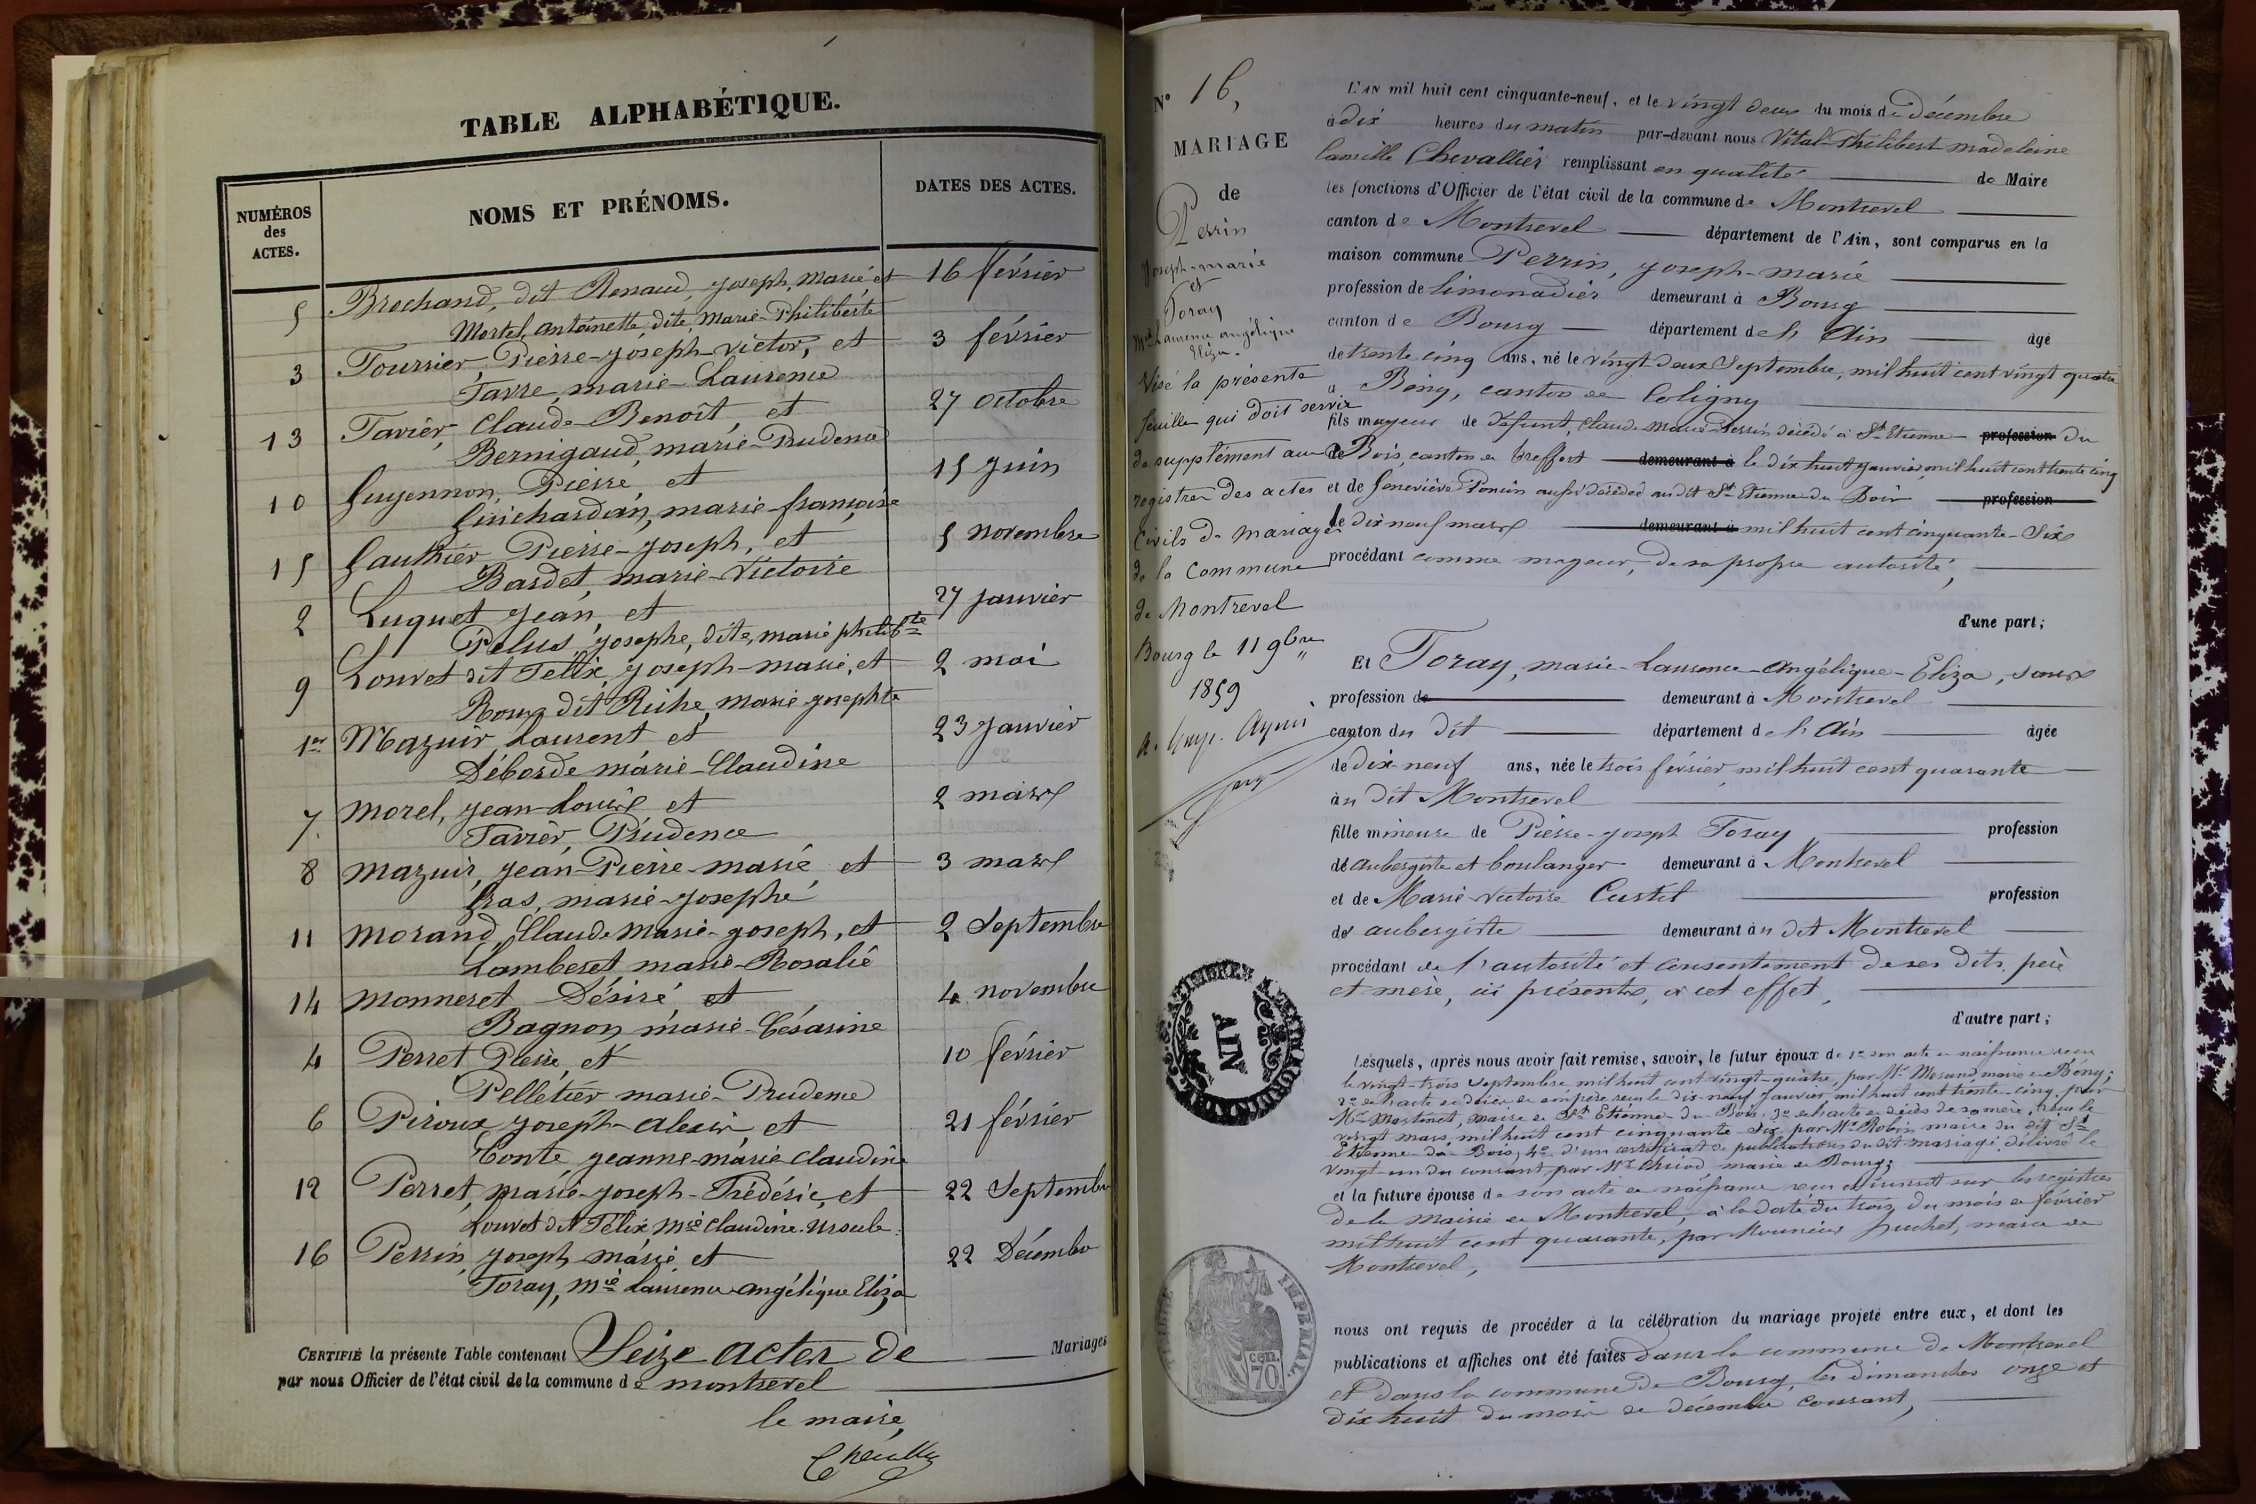 TABLE ALPHABÉTIQUE.
NUMÉROS
des
ACTES.
NOMS ET PRÉNOMS.
DATES DES ACTES.
5 Brochand, dit Renaud, joseph, marie et 16 février
Mortel, antoinette dite, Marie-Philiberte
3 Fournier, Pierre-joseph-victor, et 3 février
Favre, marie-Laurence
13 Favier, Claude-Benoît, et 27 octobre
Bernigaud, marie-Prudence
10 Guyennon, Pierre et 15 juin
Guichardan, marie-françoise
15 Gauthier, Pierre-joseph, et 5 novembre
Bardet, marie-Victoire
2 Luquet jean, et 27 janvier
Pelus, josephe, dite, marie philibte
9 Louvet dit Félix, joseph-marie, et 2 mai
Roux dit Riche, marie-josephte
1er Mazuir, Laurent et 23 janvier
Déborde marie-Claudine
7. Morel, jean-Louis et 2 mars
Favier, Prudence
8 Mazuir, jean-Pierre-marie, et 3 mars
Gras, marie-josephe
11 Morand, Claude Marie-joseph, et 2 Septembre
Lamberet marie-Rosalie
14 Monneret Désiré, et 4 novembre
Bagnon, marie-Césarine
4 Perret, Pierre, et 10 février
Pelletier marie-Prudence
6 Piroux joseph-alexis, et 21 février
Conte jeanne-marie claudine
12 Perret, marie-joseph-Frédéric, et 22 Septembre
Louvet dit Félix Mie claudine-ursule
16 Perrin, joseph marie, et 22 Décembre
Foray, Mie Laurence angélique Eliza
CERTIFIÉ la présente Table contenant Seize actes de Mariages
par nous Officier de l'état civil de la commune de montrevel
le maire,
N° 16,
MARIAGE
de
Perrin
Joseph-marie
et
Foray
Mie Laurence angélique
Eliza.
Visé la présente
feuille qui doit servir
de supplément au
registre des actes
civils de mariage
de la commune
de Montrevel
Bourg le 11 9bre
1859
L'AN mil huit cent cinquante-neuf, et le vingt deux du mois de Décembre
à dix heures du matin par-devant nous Vital-Philibert madeleine
Camille Chevallier remplissant en qualité de Maire
les fonctions d'Officier de l'état civil de la commune de Montrevel
canton de Montrevel département de l'Ain, sont comparus en la
maison commune Perrin, joseph-marie
profession de limonadier demeurant à Bourg
canton de Bourg département de l'Ain agé
de trente cinq ans, né le vingt-deux Septembre, mil huit cent vingt quatre
à Bény, canton de Coligny
fils majeur de défunt, Claude-Marie Perrin décédé à St Etienne profession du
de Bois, canton de Treffort demeurant à le dix huit janvier mil huit cent trente cinq
et de Geneviève Poncin aussi décédée au dit St Etienne du Bois profession
le dix neuf mars demeurant à mil huit cent cinquante-Six
procédant comme majeur, de sa propre autorité,
d'une part;
Et Foray, marie-Laurence-Angélique-Eliza, sans
profession de demeurant à Montrevel
canton du dit département de l'Ain âgée
de dix neuf ans, née le trois février mil huit cent quarante
au dit Montrevel
fille mineure de Pierre-joseph Foray profession
de aubergiste et boulanger demeurant à Montrevel
et de Marie-Victoire Custel profession
de aubergiste demeurant au dit Montrevel
procédant de l'autorité et consentement de ses dits père
et mère, ici présents, à cet effet,
d'autre part;
Lesquels, après nous avoir fait remise, savoir, le futur époux de 1° son acte de naissance reçu
le vingt-trois Septembre mil huit cent vingt-quatre, par Mr Morand maire de Bény;
2° de l'acte de décès de son père reçu le dix-neuf janvier mil huit cent trente-cinq par
Mr maire de St Etienne-du Bois, 3° de l'acte de décès de sa mère, reçu le
vingt mars mil huit cent cinquante-Six par Mr Robin maire du dit St
Etienne-du Bois, 4° d'un certificat de publications du dit mariage délivré le
vingt-un du courant par Mr maire de Bourg;
et la future épouse de son acte de naissance reçu et inscrit sur les registres
de la mairie de Montrevel, à la date du trois du mois de février
mil huit cent quarante, par Monsieur maire de
Montrevel,
nous ont requis de procéder à la célébration du mariage projeté entre eux, et dont les
publications et affiches ont été faites dans la commune de Montrevel
et dans la commune de Bourg, les dimanches onze et
dix huit du mois de décembre courant,
AIN
TIMBRE IMPÉRIAL
70 cen.